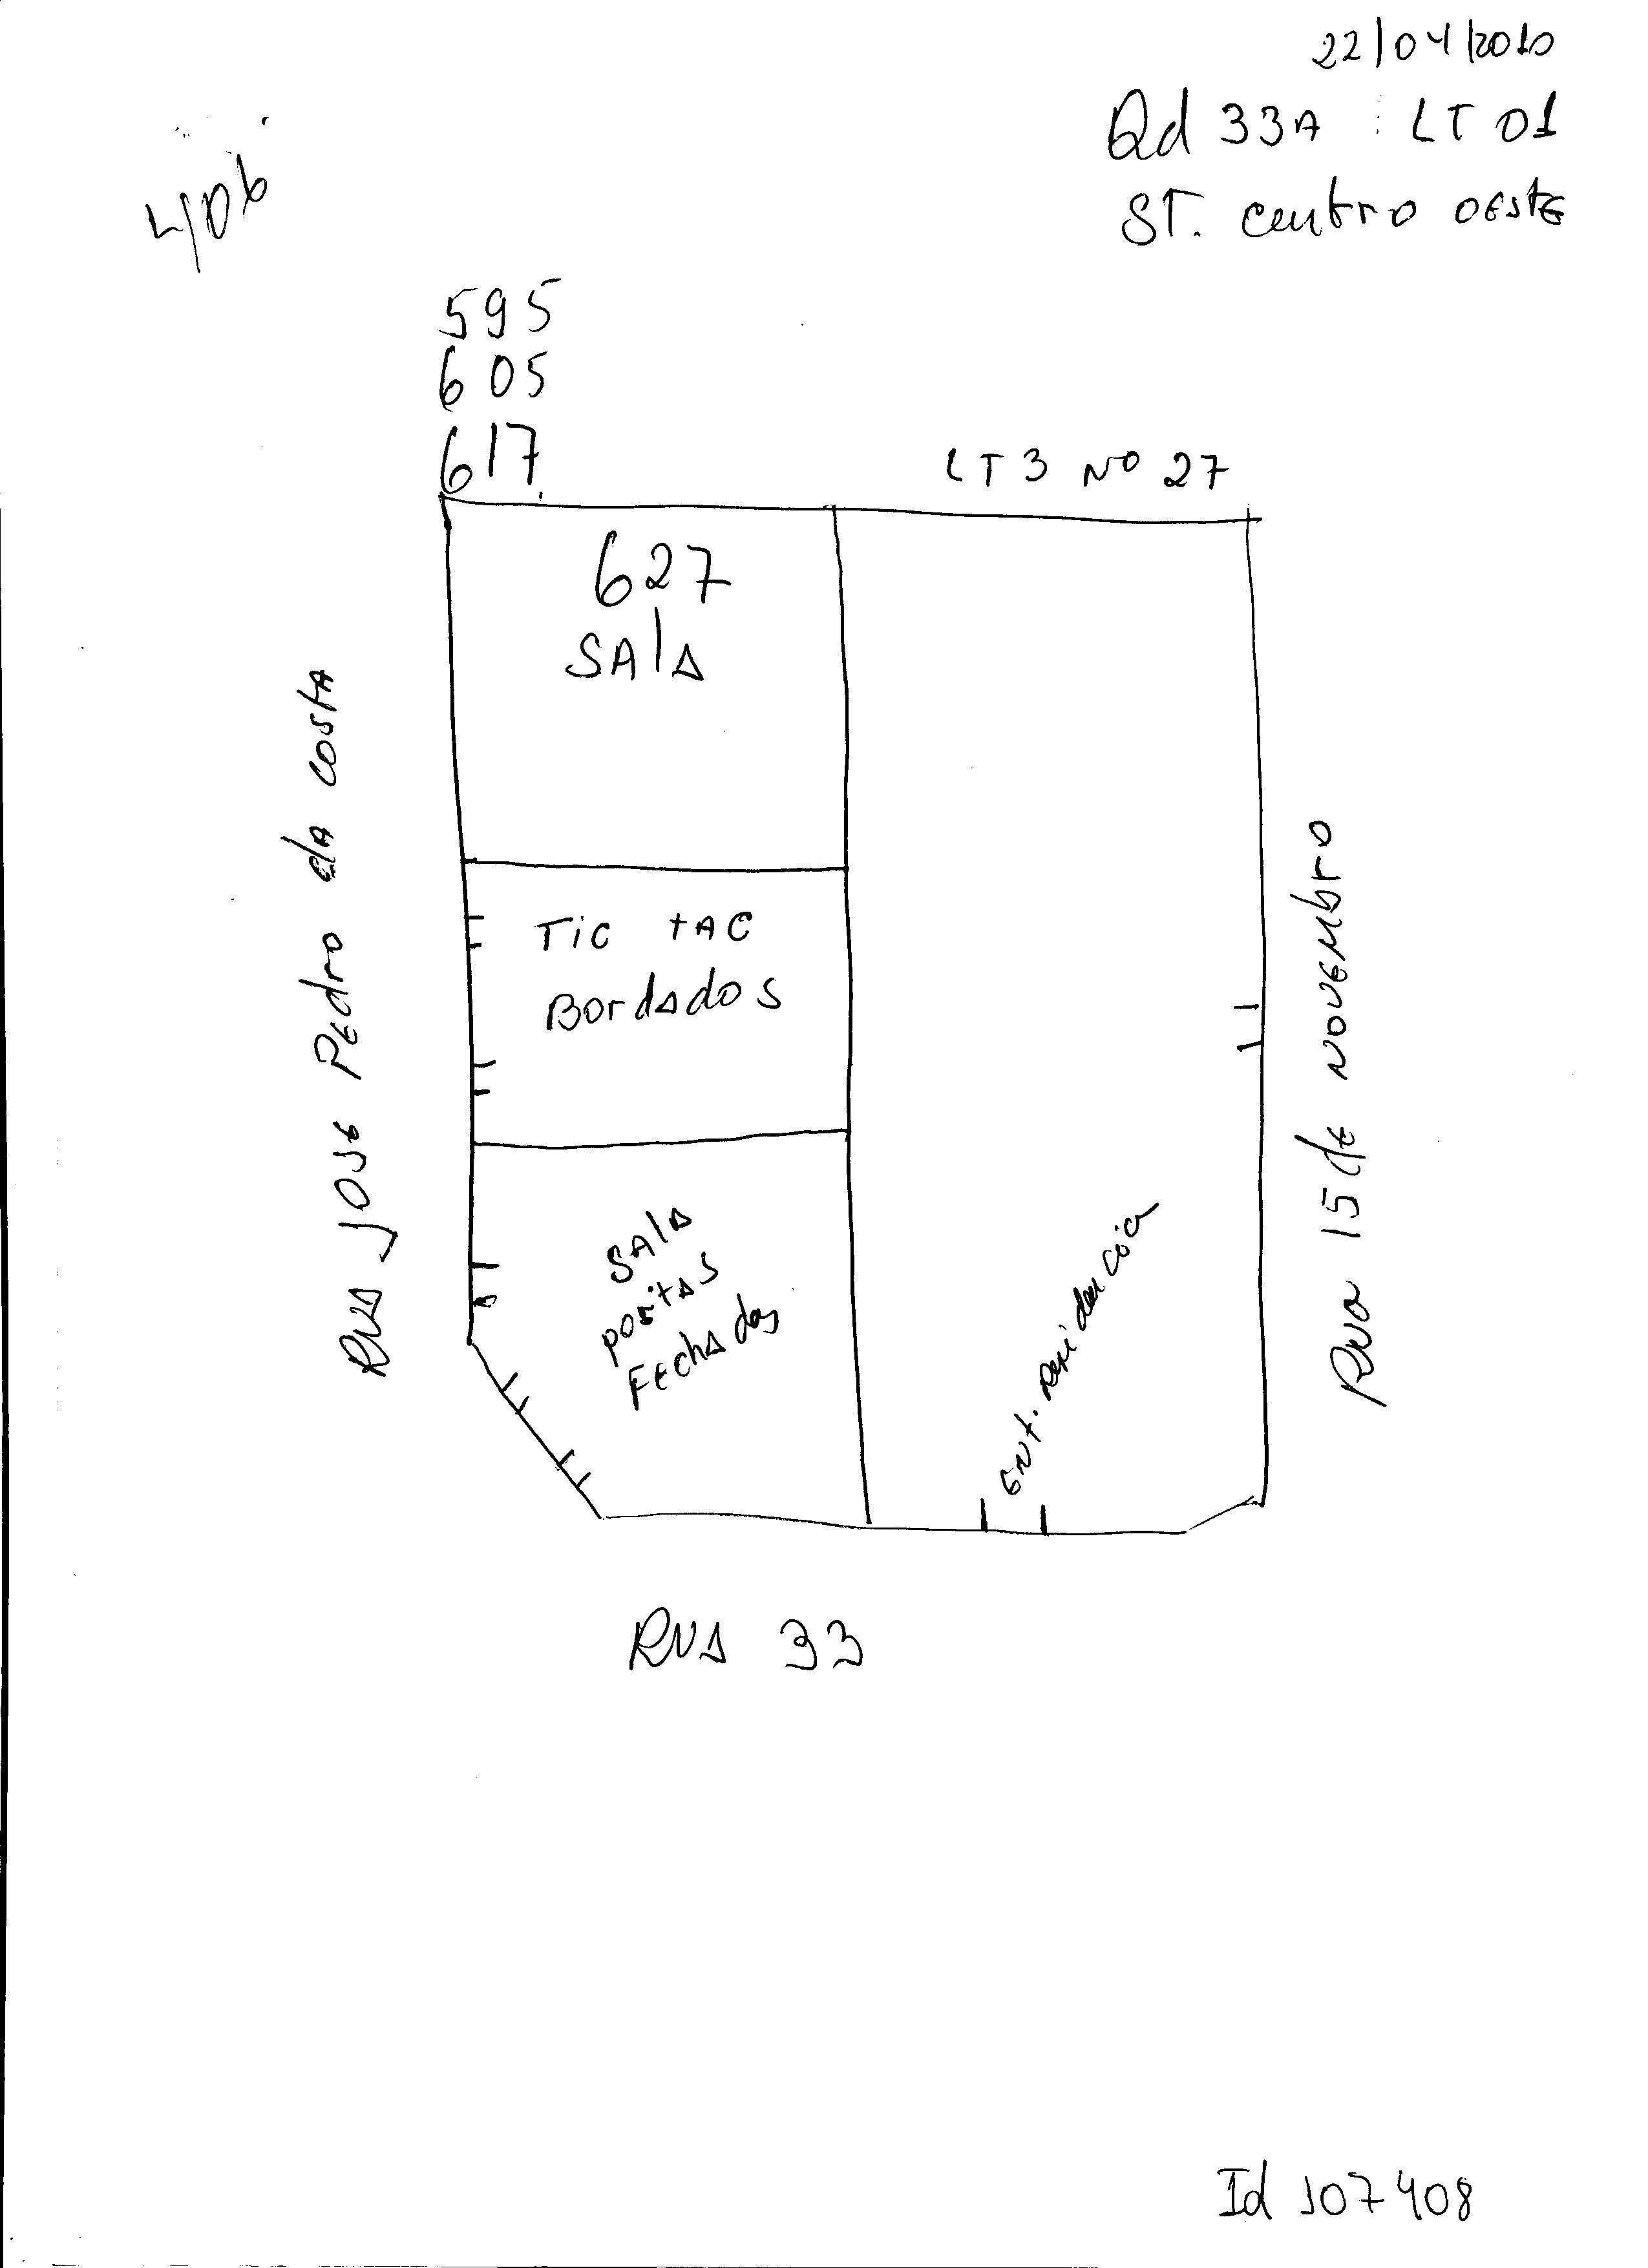 22/04/2010
Qd 33A LT 01
ST. centro oeste
595
605
617
LT 3 No 27
627
SAlA
Rua José Pedro da costa
Tic tac
Bordados
Rua 15 de novembro
SAlA
portas
Fechadas
ent. residencia
RUA 33
Id 107408